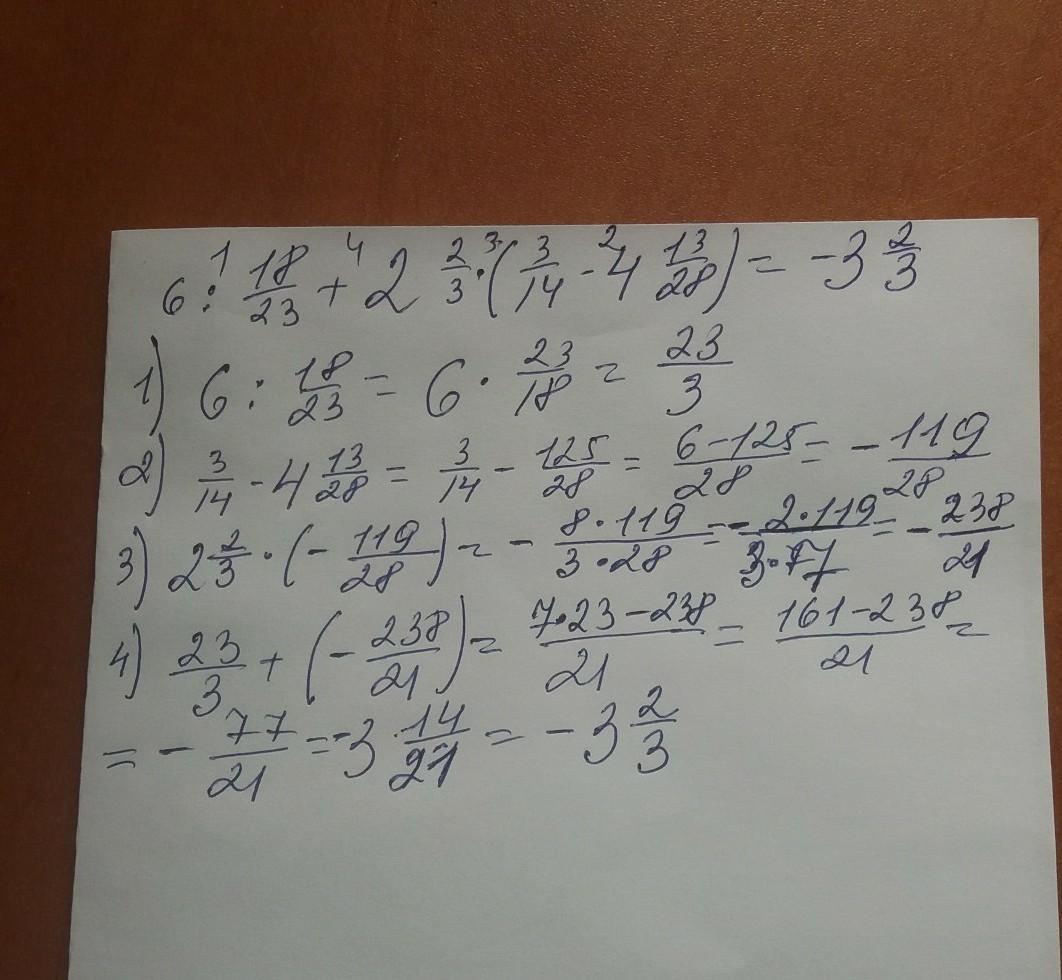 6 : 18/23 + 2 2/3 · (3/14 - 4 13/28) = -3 2/3
1) 6 : 18/23 = 6 · 23/18 = 23/3
2) 3/14 - 4 13/28 = 3/14 - 125/28 = 6-125/28 = -119/28
3) 2 2/3 · (-119/28) = - 8·119/3·28 = - 2·119/3·7 = - 238/21
4) 23/3 + (-238/21) = 7·23-238/21 = 161-238/21 =
= - 77/21 = -3 14/21 = -3 2/3